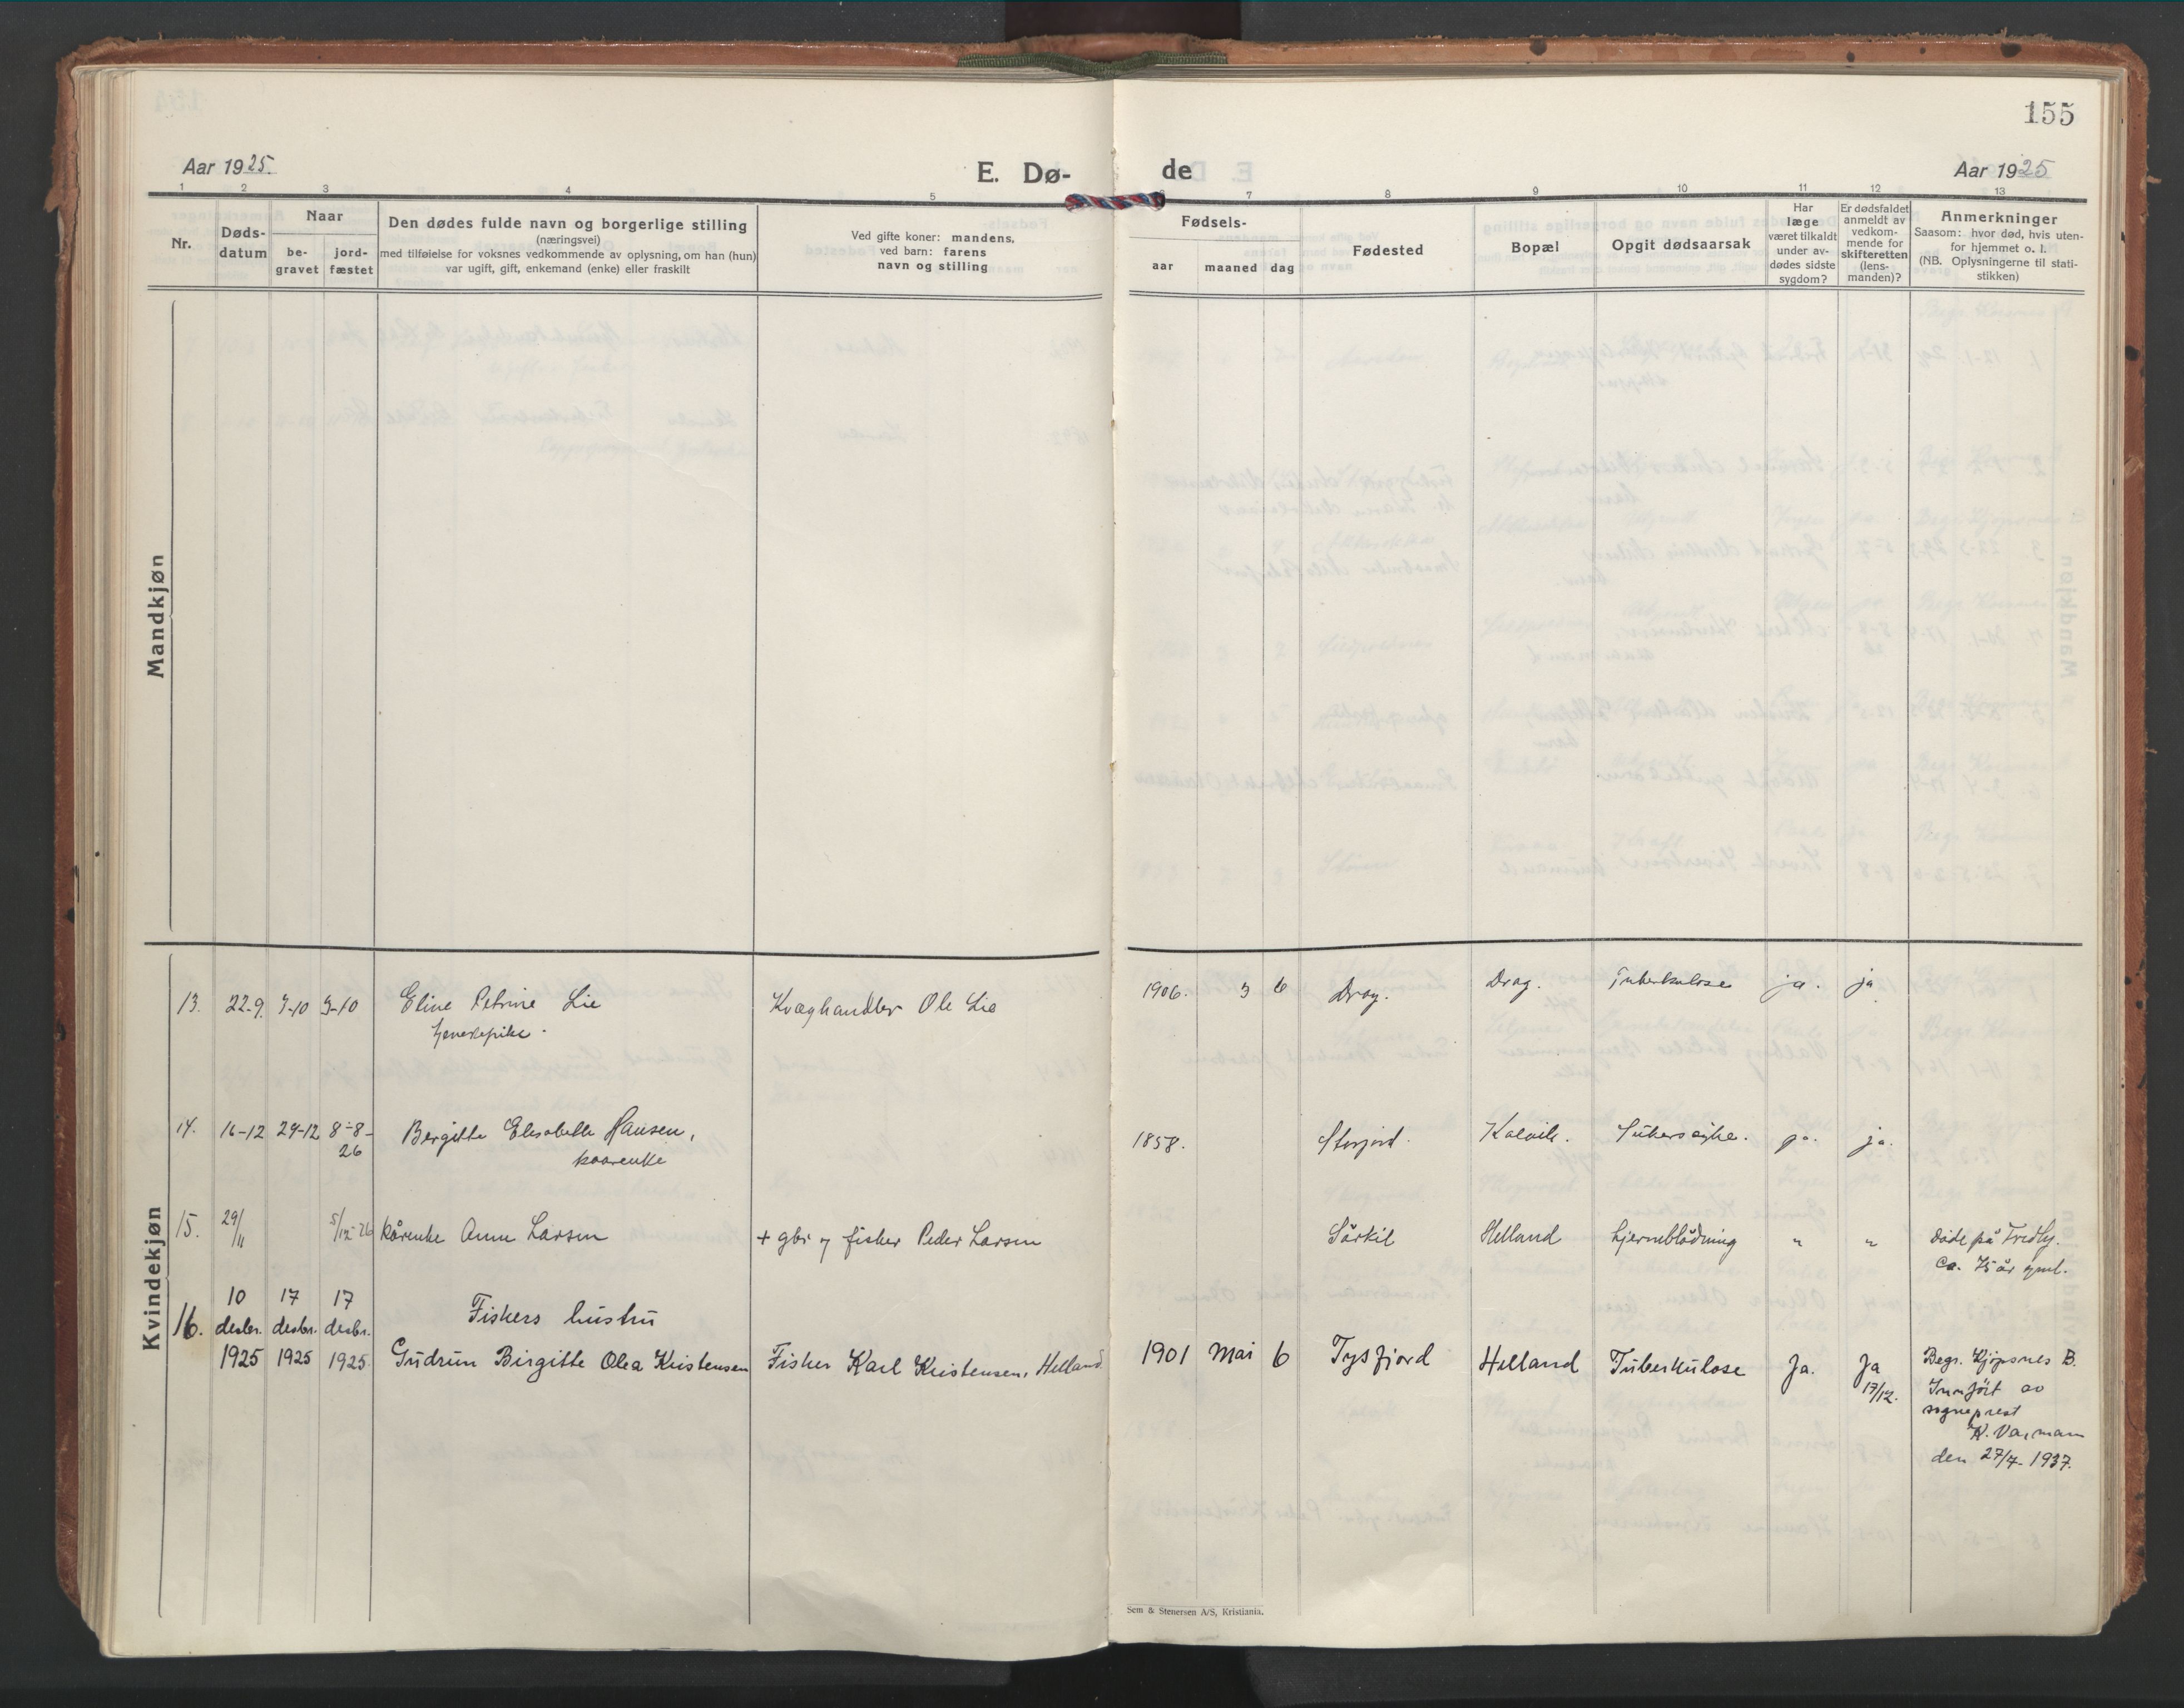 155
Aar 1925.
E. Dø-
de
Aar 1925
1 2 3 4 5 6 7 8 9 10 11 12 13
Nr.
Døds-
datum
Naar
be-
gravet
jord-
fæstet
Den dødes fulde navn og borgerlige stilling
(næringsvei)
med tilføielse for voksnes vedkommende av oplysning, om han (hun)
var ugift, gift, enkemand (enke) eller fraskilt
Ved gifte koner: mandens,
ved barn: farens
navn og stilling
Fødsels-
aar
maaned
dag
Fødested
Bopæl
Opgit dødsaarsak
Har
læge
været tilkaldt
under av-
dødes sidste
sygdom?
Er dødsfaldet
anmeldt av
vedkom-
mende for
skifteretten
(lens-
manden)?
Anmerkninger
Saasom: hvor død, hvis uten-
for hjemmet o. l.
(NB. Oplysningerne til stati-
stikken)
Mandkjøn
Kvindekjøn
13. 22-9. 3-10 3-10 Eline Petrine Lie Kvæghandler Ole Lie 1906. 3 6 Drag. Drag. Tuberkulose ja. ja
tjenestepike.
14. 16-12 29-12 8-8-
26
Bergitte Elisabeth Hansen, 1858. Storjord. Kalvik. Sukkersyke. ja. ja.
kaarenke
15. 29/11 5/12-26 kårenke Anne Larsen + gbr og fisker Peder Larsen Sörkil Helland hjerneblödning " " döde på Fredly.
Ca. 75 år gml.
10 17 17
16. desbr. desbr. desbr. Fiskers hustru
1925 1925 1925. Gudrun Birgitte Olea Kristensen Fisker Karl Kristensen, Helland. 1901 Mai 6 Tysfjord Helland Tuberkulose Ja. Ja
17/12.
Begr. Kjöpsnes B.
Innfört av
sogneprest
K.
den 27/7-1937.
Sem & Stenersen A/S, Kristiania.